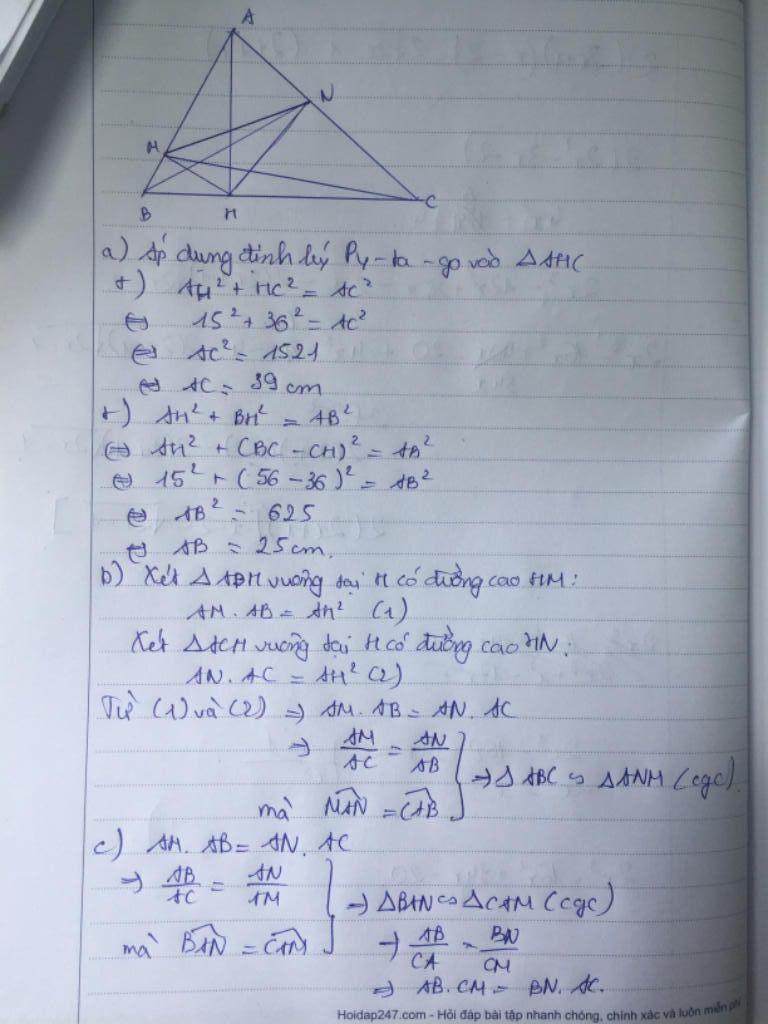 A
N
M
B
H
C
a) Áp dụng định lý Py-ta-go vào ΔAHC
+) AH² + HC² = AC²
⇔ 15² + 36² = AC²
⇔ AC² = 1521
⇔ AC = 39 cm
+) AH² + BH² = AB²
⇔ AH² + (BC - CH)² = AB²
⇔ 15² + (56 - 36)² = AB²
⇔ AB² = 625
⇔ AB = 25 cm.
b) Xét ΔABH vuông tại H có đường cao HM:
AM. AB = AH² (1)
Xét ΔACH vuông tại H có đường cao HN:
AN. AC = AH² (2)
Từ (1) và (2) ⇒ AM. AB = AN. AC
⇒ AM/AC = AN/AB ⇒ ΔABC ∽ ΔANM (cgc)
mà MAN = CAB
c) AM. AB = AN. AC
⇒ AB/AC = AN/AM ⇒ ΔBAN ∽ ΔCAM (cgc)
mà BAN = CAM ⇒ AB/CA = BN/CM
⇒ AB. CM = BN. AC.
Hoidap247.com - Hỏi đáp bài tập nhanh chóng, chính xác và luôn miễn phí